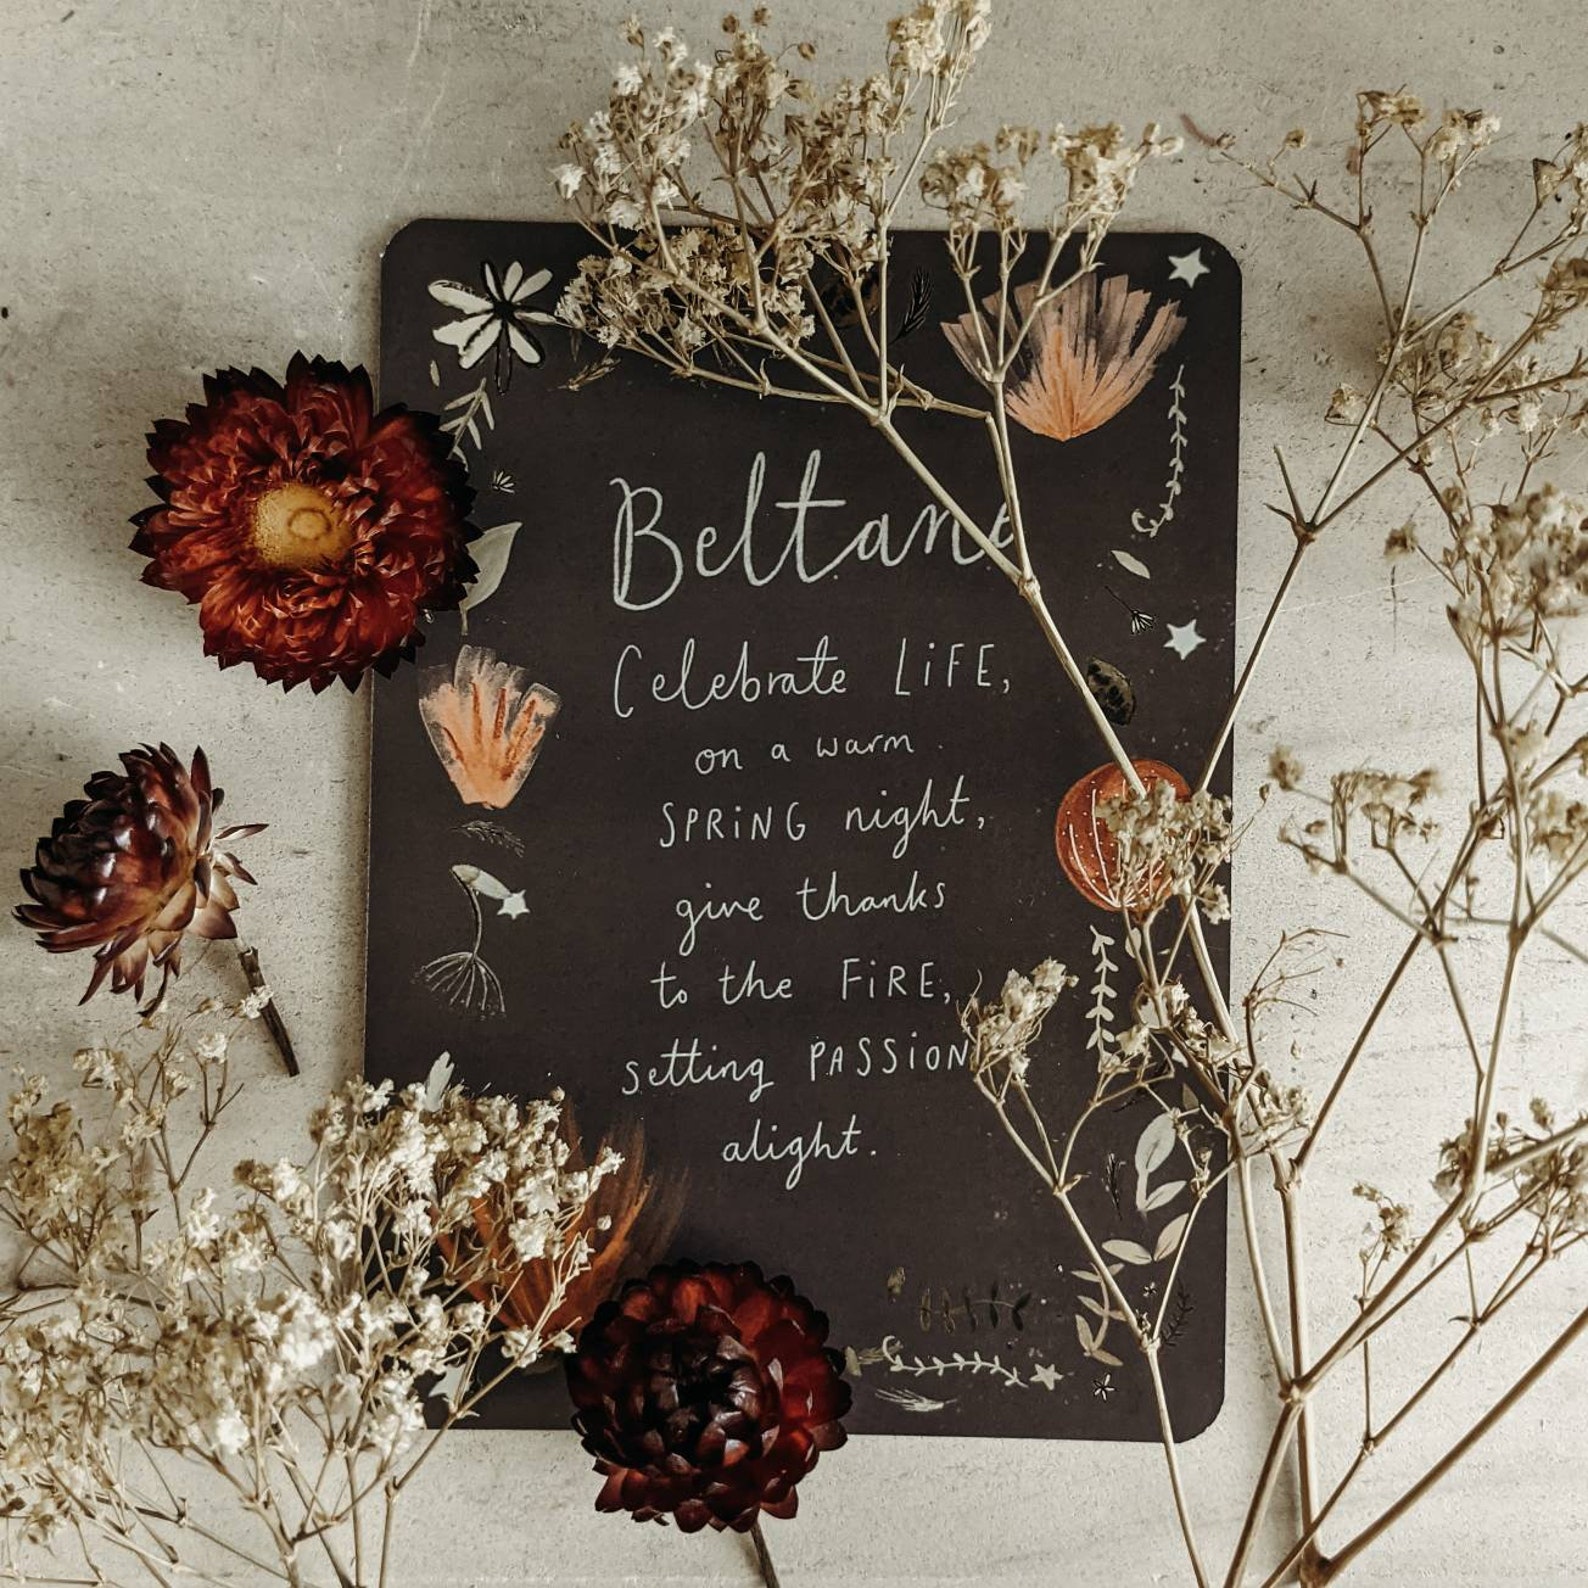 Beltane
Celebrate LiFE,
on a warm
SPRiNG night,
give thanks
to the FiRE,
setting PASSiON
alight.